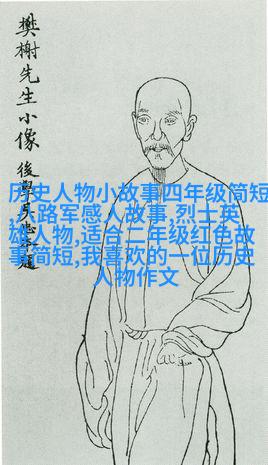 樊榭先生小像
後學
题
历史人物小故事四年级简短
,八路军感人故事,烈士英
雄人物,适合二年级红色故
事简短,我喜欢的一位历史
人物作文